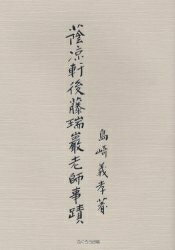 蔭涼軒後藤瑞巖老師事蹟
島崎義孝著